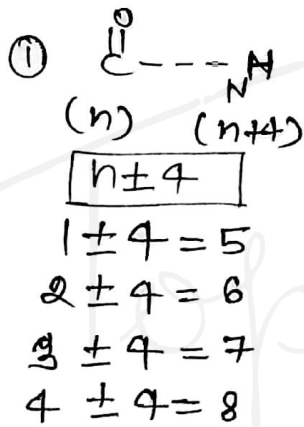 ① O
C - - - N H
(n) (n+4)
n ± 4
1 ± 4 = 5
2 ± 4 = 6
3 ± 4 = 7
4 ± 4 = 8